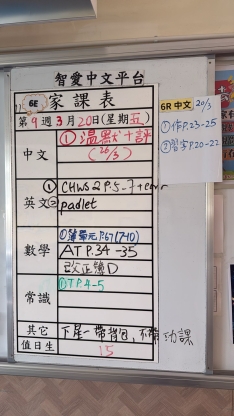 智愛中文平台
6E 家課表
第9週3月20日(星期五)
中文
①溫默+評
(26/3)
英文
① CHWS 2 P.5-7 + corr
② padlet
數學
P.67 (7-10)
AT P.34-35
改正簿D
常識
① T P.4-5
其它
下星一帶背包,不帶功課
值日生
15
6R 中文 20/3
①作P.23-25
②習字P.20-22